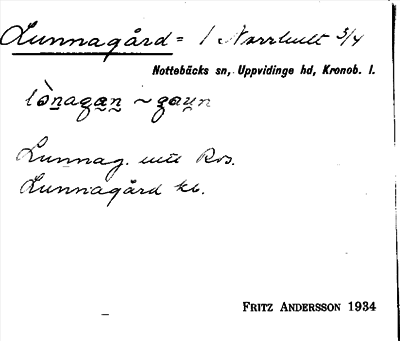 Lunnagård = 1 Norrhult 3/4
Nottebäcks sn, Uppvidinge hd, Kronob. l.
lònagan ~ gaun
Lunnag. uti Ros.
Lunnagård kb.
FRITZ ANDERSSON 1934